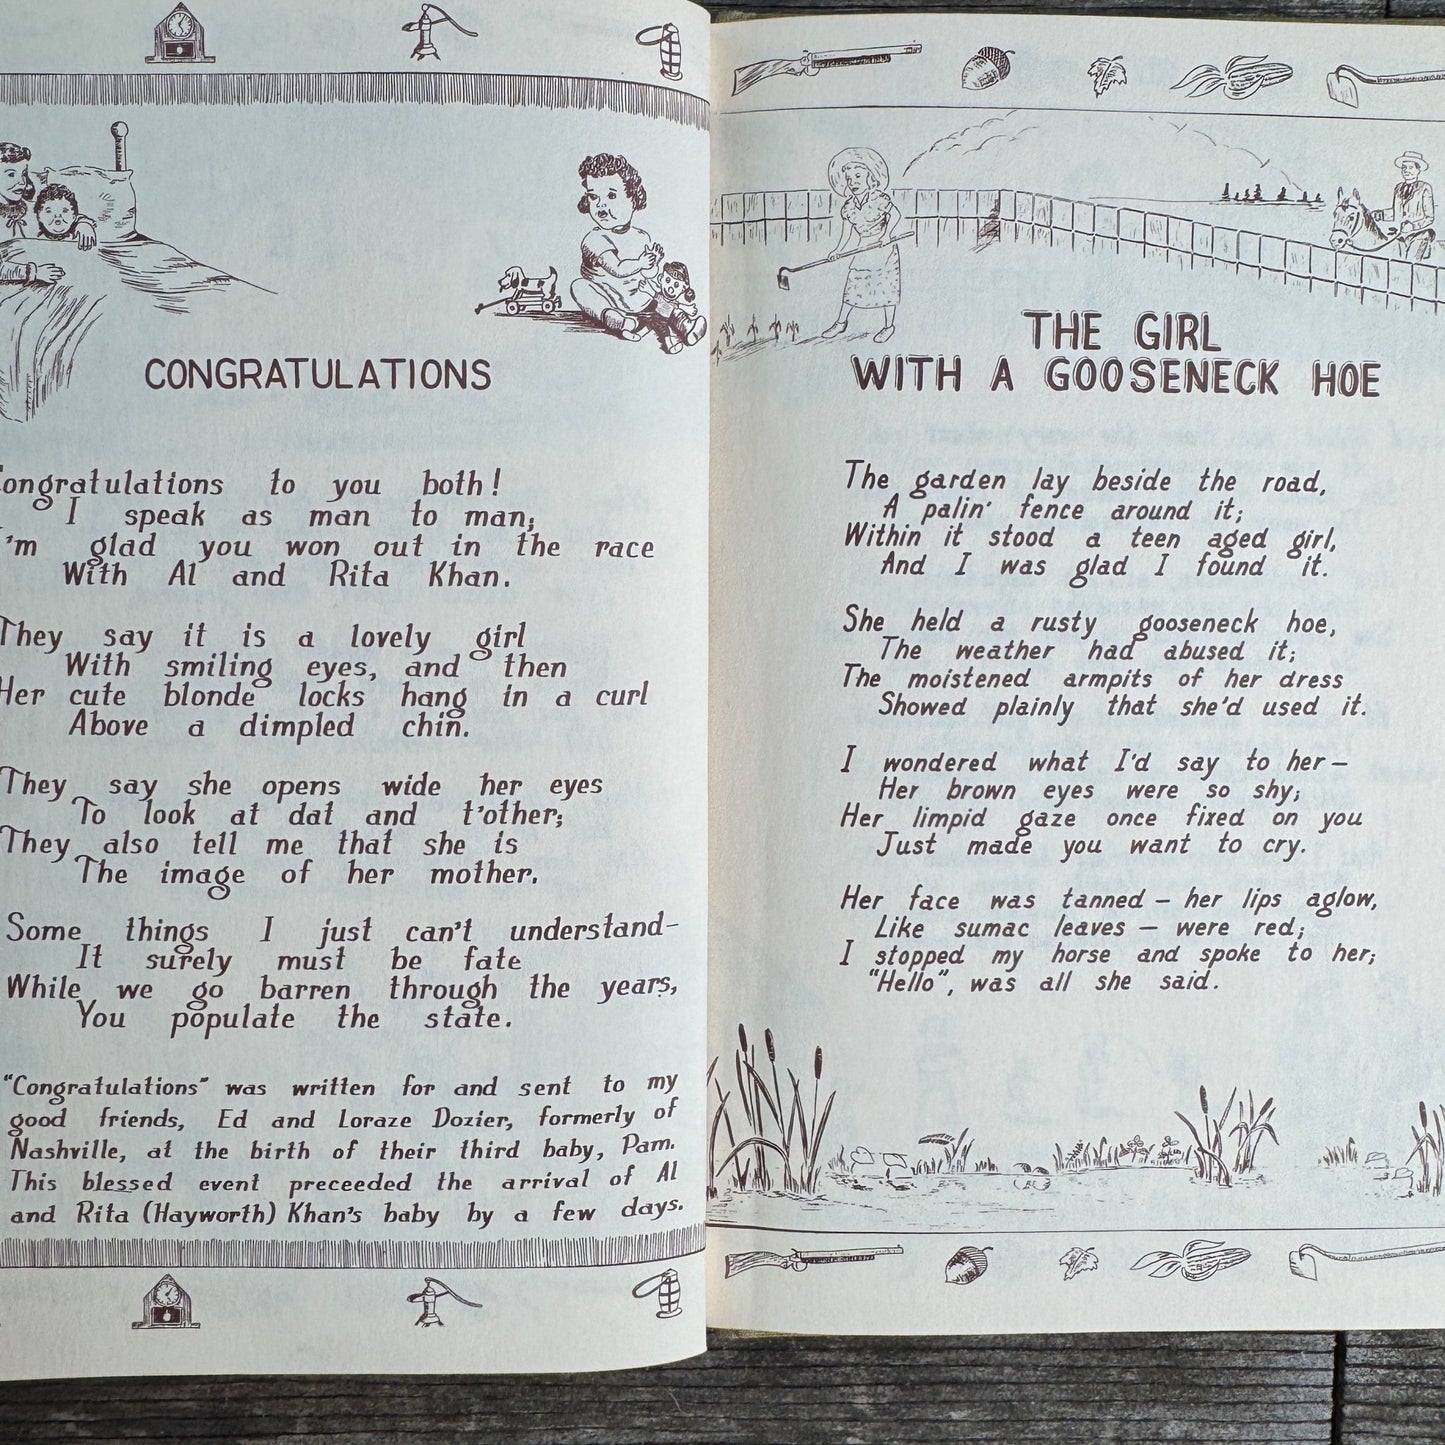 CONGRATULATIONS
Congratulations to you both!
I speak as man to man;
I'm glad you won out in the race
With Al and Rita Khan.
They say it is a lovely girl
With smiling eyes, and then
Her cute blonde locks hang in a curl
Above a dimpled chin.
They say she opens wide her eyes
To look at dat and t'other;
They also tell me that she is
The image of her mother.
Some things I just can't understand—
It surely must be fate
While we go barren through the years,
You populate the state.
"Congratulations" was written for and sent to my
good friends, Ed and Loraze Dozier, formerly of
Nashville, at the birth of their third baby, Pam.
This blessed event preceeded the arrival of Al
and Rita (Hayworth) Khan's baby by a few days.
THE GIRL
WITH A GOOSENECK HOE
The garden lay beside the road,
A palin' fence around it;
Within it stood a teen aged girl,
And I was glad I found it.
She held a rusty gooseneck hoe,
The weather had abused it;
The moistened armpits of her dress
Showed plainly that she'd used it.
I wondered what I'd say to her—
Her brown eyes were so shy;
Her limpid gaze once fixed on you
Just made you want to cry.
Her face was tanned — her lips aglow,
Like sumac leaves — were red;
I stopped my horse and spoke to her;
"Hello", was all she said.